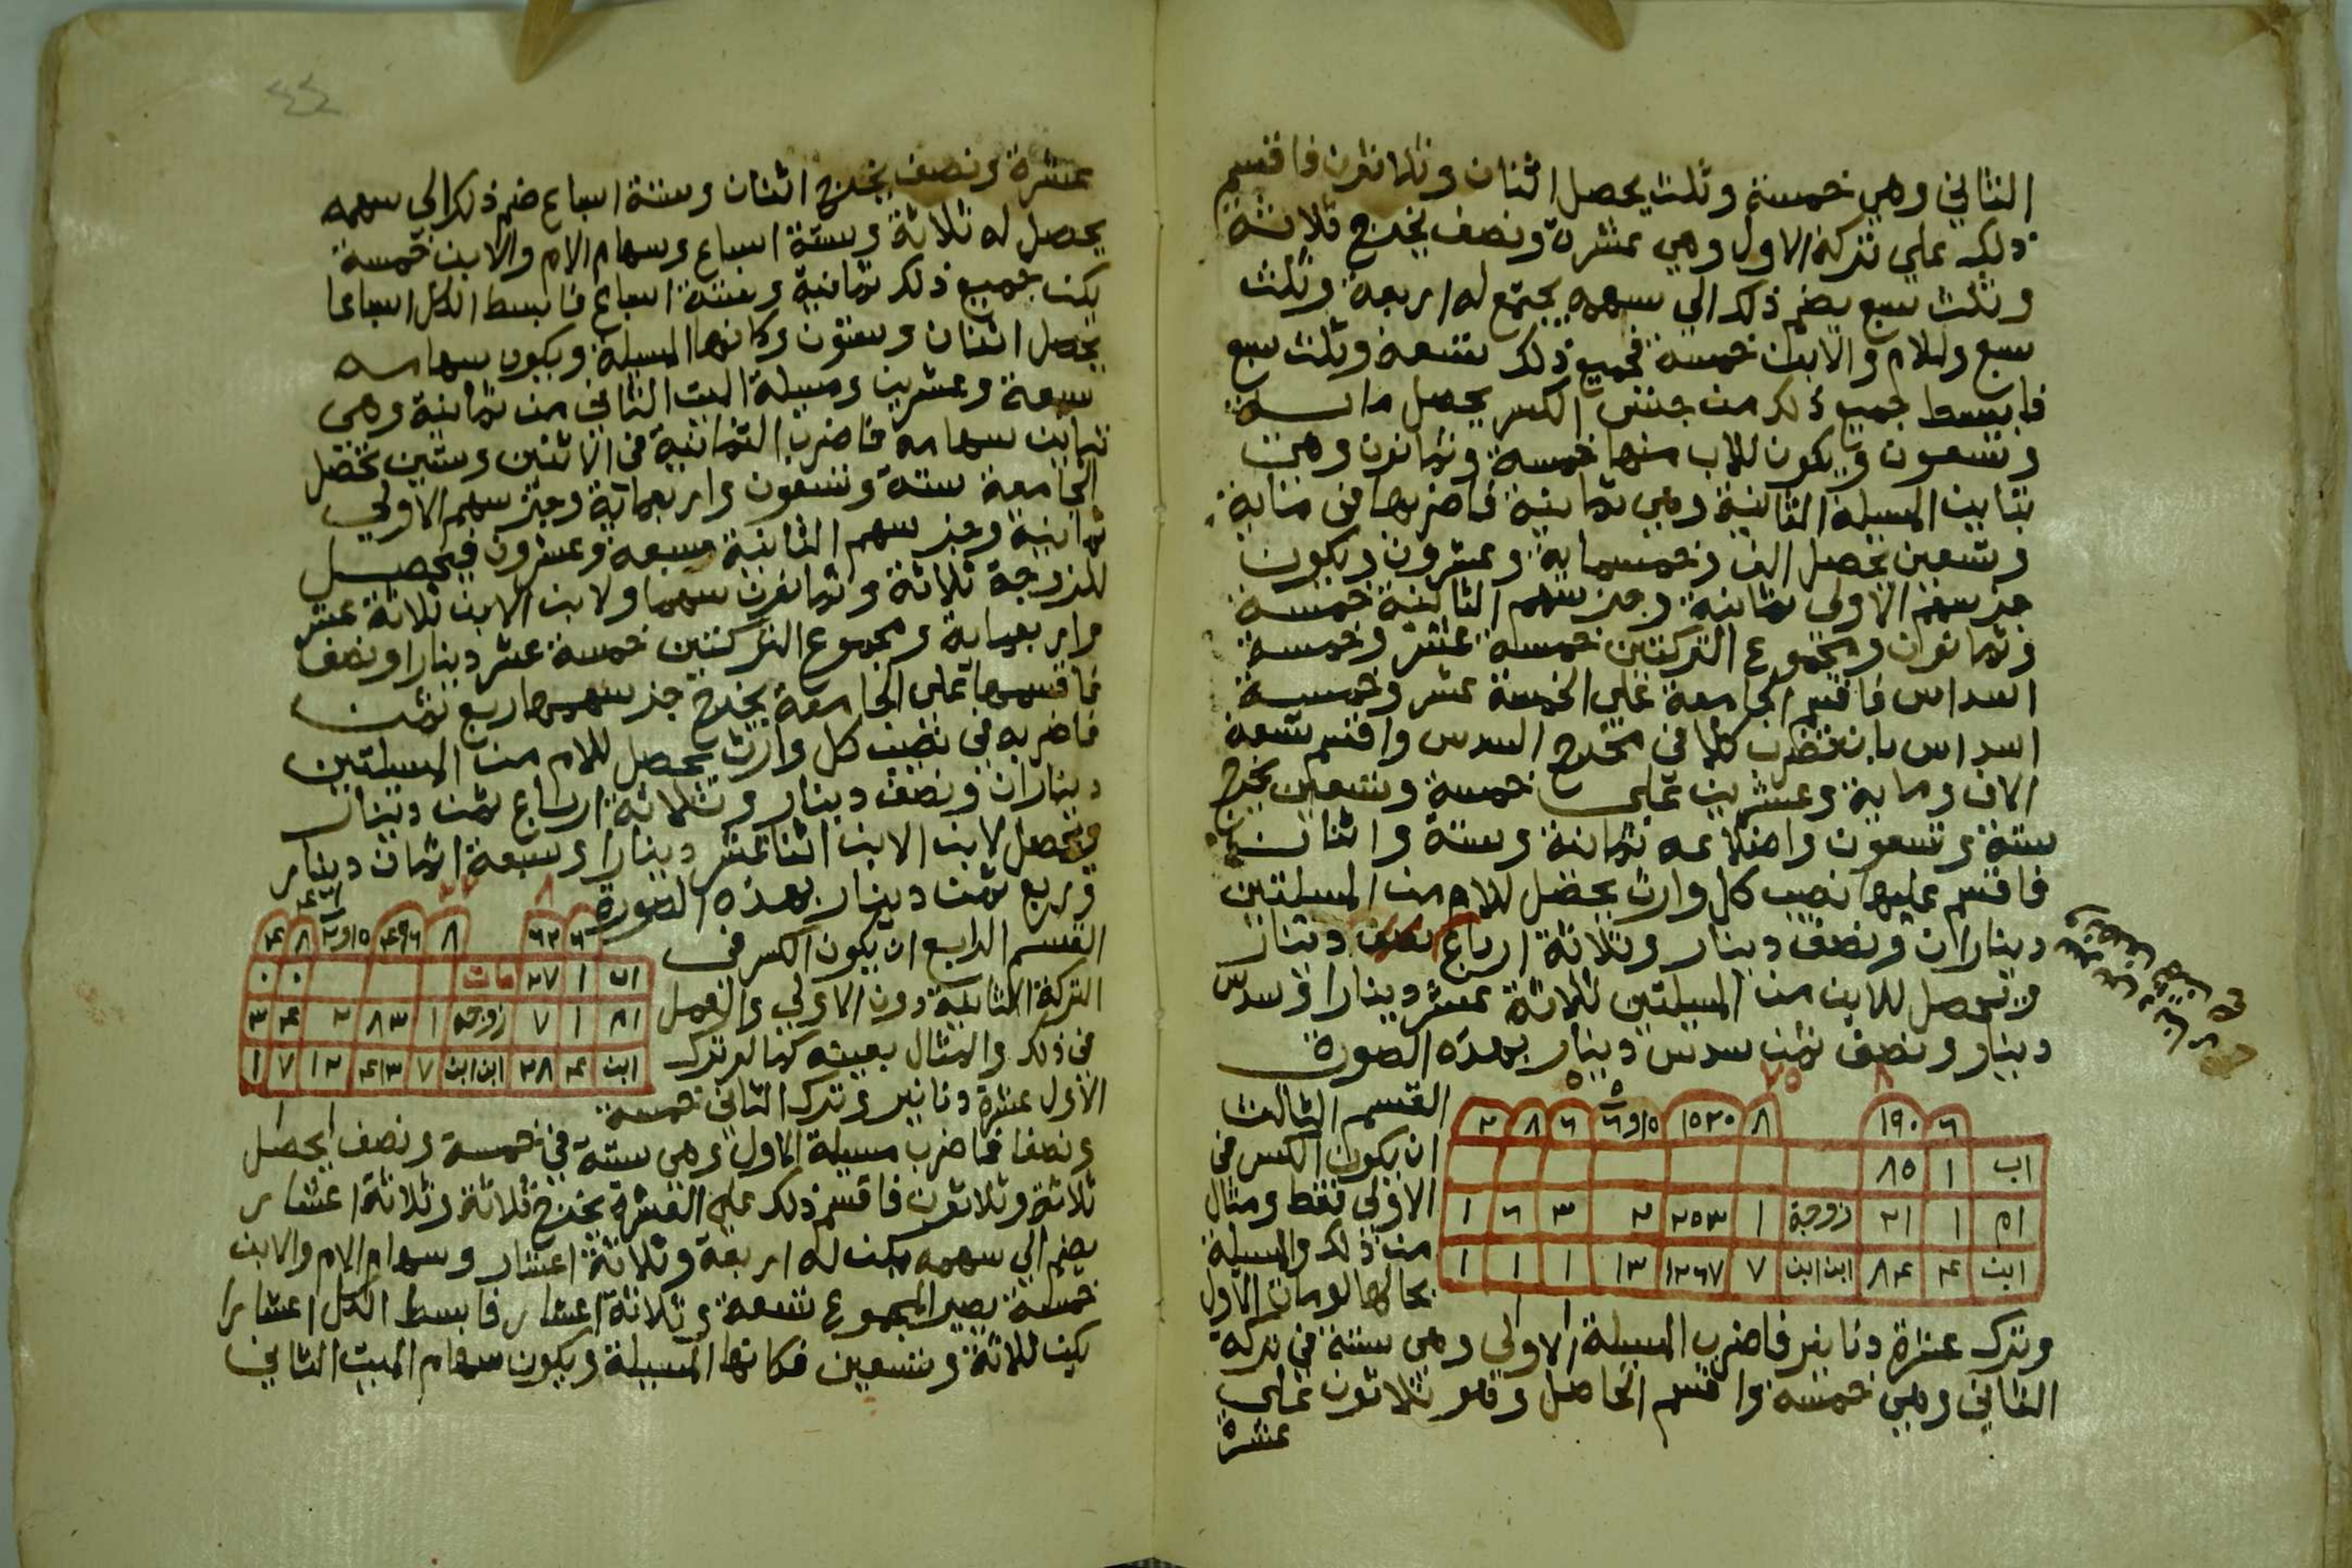 الثاني وهي خمسة وثلث يحصل اثنان وثلاثون فاقسم
ذلك على تركة الاول وهي عشرة ونصف يخرج ثلاثة
وثلث سبع يضم ذلك الي سهمه يجتمع له اربعة وثلث
سبع وللام والابن خمسة فجميع ذلك تسعة وثلث سبع
فابسط جميع ذلك من جنس الكسر يحصل ماية
وتسعون ويكون للاب منها خمسة وثمانون وهي
تباين المسيلة الثانية وهي ثمانية فاضربها في ماية
وتسعين يحصل الف وخمسماية وعشرون ويكون
جز سهم الاولي ثمانية وجز سهم الثانية خمسة
وثمانون ومجموع التركتين خمسة عشر وخمسة
اسداس فاقسم الجامعة علي الخمسة عشر وخمسة
اسداس بان تضرب كلا في مخرج السدس واقسم تسعة
الاف وماية وعشرين علي خمسة وتسعين يخرج
ستة وتسعون واضلاعه ثمانية وستة واثنان
فاقسم عليها نصيب كل وارث يحصل للام من المسيلتين
ديناران ونصف دينار وثلاثة ارباع دينار
ويحصل للابن من المسيلتين ثلاثة عشر دينارا وسدس
دينار ونصف ثمن سدس دينار بهذه الصورة
القسم الثالث
ان يكون الكسر في
الاولي فقط ومثال
من ذلك والمسيلة
بحالها لو مات الاول
٦ ١٩٠ ٨ ١٥٢٠ ١٥ و٥ ٦ ٦ ٨ ٢
اب ١ ٨٥
ام ١ ٢١ زوجة ١ ٢٥٣ ٢ ٣ ٦ ١
ابن ٤ ٨٤ ابن ابن ٧ ١٢٦٧ ١٣ ١ ١ ١
وترك عشرة دنانير فاضرب المسيلة الاولي وهي ستة في تركة
الثاني وهي خمسة واقسم الحاصل وهو ثلاثون علي
عشرة
عشرة ونصف يخرج اثنان وستة اسباع ضم ذلك الي سهمه
يحصل له ثلاثة وستة اسباع وسهام الام والابن خمسة
يكن جميع ذلك ثمانية وستة اسباع فابسط الكل اسباعا
يحصل اثنان وستون وكانها المسيلة ويكون سهامه
سبعة وعشرين ومسيلة الميت الثاني من ثمانية وهي
تباين سهامه فاضرب الثمانية في الاثنين وستين تحصل
الجامعة ستة وتسعون واربعماية وجز سهم الاولي
ثمانية وجز سهم الثانية سبعة وعشرون فيحصل
للزوجة ثلاثة وثمانون سهما ولابن الابن ثلاثة عشر
واربعماية ومجموع التركتين خمسة عشر دينارا ونصف
فاقسمها علي الجامعة يخرج جز سهمها ربع ثمن
فاضربه في نصيب كل وارث يحصل للام من المسيلتين
ديناران ونصف دينار وثلاثة ارباع ثمن دينار
ويحصل لابن الابن اثنا عشر دينارا وسبعة اثمان دينار
وربع ثمن دينار بهذه الصورة
القسم الرابع ان يكون الكسر في
التركة الثانية دون الاولي والعمل
في ذلك والمثال بعينه كما لو ترك
٦ ٦٢ ٨ ٤٩٦ ١٥ و٢ ٨ ٤
اب ١ ٢٧ مات ٠ ٠
ام ١ ٧ زوجة ١ ٨٣ ٢ ٤ ٣
ابن ٤ ٢٨ ابن ابن ٧ ٤١٣ ١٢ ٧ ١
الاول عشرة دنانير وترك الثاني خمسة
ونصفا فاضرب مسيلة الاول وهي ستة في خمسة ونصف يحصل
ثلاثة وثلاثون فاقسم ذلك علي العشرة يخرج ثلاثة وثلاثة اعشار
يضم الي سهمه يكن له اربعة وثلاثة اعشار وسهام الام والابن
خمسة يصير المجموع تسعة وثلاثة اعشار فابسط الكل اعشارا
يكن ثلاثة وتسعين فكانها المسيلة ويكون سهام الميت الثاني